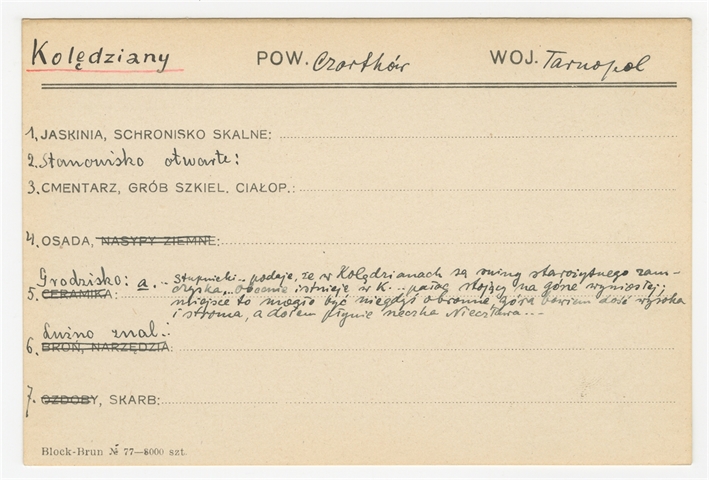 Kolędziany POW. Czortków WOJ. Tarnopol
1. JASKINIA, SCHRONISKO SKALNE:
2. Stanowisko otwarte:
3. CMENTARZ, GRÓB SZKIEL. CIAŁOP.:
4. OSADA, NASYPY ZIEMNE:
Grodzisko: a. .. Stupnicki.. podaje, że w Kolędzianach są ruiny starożytnego zam-
5. CERAMIKA: czyska... obecnie istnieje w K... pałac stojący na górze wyniosłej;
miejsce to mogło być niegdyś obronne, góra bowiem dość wysoka
i stroma, a dołem płynie rzeczka Nieczława...
Luźno znal.:
6. BROŃ, NARZĘDZIA:
7. OZDOBY, SKARB:
Block-Brun № 77—8000 szt.